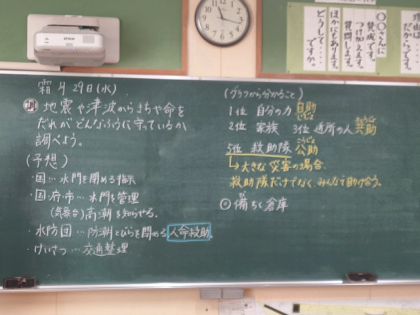 霜月29日(水)
調 地震や津波からまちや命を
だれが どんなふうに守っているか
調べよう。
(予想)
・国…水門を閉める指示
・国府・市…水門を管理
(気象台)高潮を知らせる。
・水防団…防潮とびらを閉める 人命救助
・けいさつ…交通整理
(グラフから分かること)
1位 自分の力 自助
じじょ
2位 家族 3位 近所の人 共助
きょうじょ
5位 救助隊 公助
こうじょ
→大きな災害の場合、
救助隊だけでなく、みんなで助け合う。
備ちく倉庫
○○さんに
つけ加えます。
賛成です。
質問します。
ほかにあります。
どうして…
ですか。